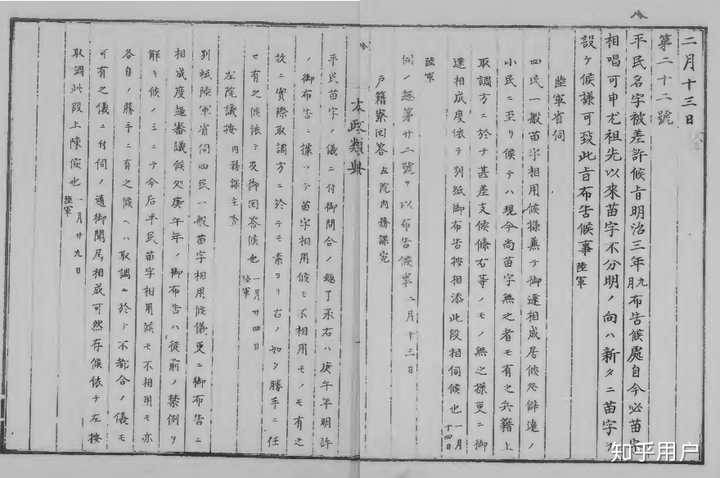 二月十三日
第二十二號
平民名字被差許候旨明治三年九月布告候處自今必苗字
相唱可申尤祖先以來苗字不分明ノ向ハ新タニ苗字ヲ
設ケ候様可致此旨布告候事 陸軍
陸軍省伺
四民一般苗字相用候様兼テ御達相成居候処僻遠ノ
小民ニ至リ候テハ現今尚苗字無之者モ有之兵籍上
取調方ニ於テ甚差支候條右等ノモノ無之様更ニ御
達相成度依テ別紙御布告按相添此段相伺候也 一月十四日
陸軍
伺ノ趣第廿二號ヲ以布告候事 二月十三日
戸籍寮回答 左院内務課宛
太政類典
平民苗字ノ儀ニ付御問合ノ趣了承右ハ庚午年明許
ノ御布告ニ據ハ苗字相用候モ不相用モノモ有之
故ニ實際取調方ニ於テモ素ヨリ右ノ如ク勝手ニ任
セ有之候依テ及御回答候也 一月廿四日 陸軍
左院議按 内務課主査
別紙陸軍省伺四民一般苗字相用候儀更ニ御布告ニ
相成度遂審議候処庚午年ノ御布告ハ従前ノ禁例ヲ
解リ候ノミニテ今后平民苗字相用候モ不相用モ亦
各自ノ勝手ニ有之候ヘハ取調ニ於テ不都合ノ儀モ
可有之儀ニ付伺ノ通御聞届相成可然存候依テ左按
取調此段上陳候也 一月廿九日 陸軍
知乎用户